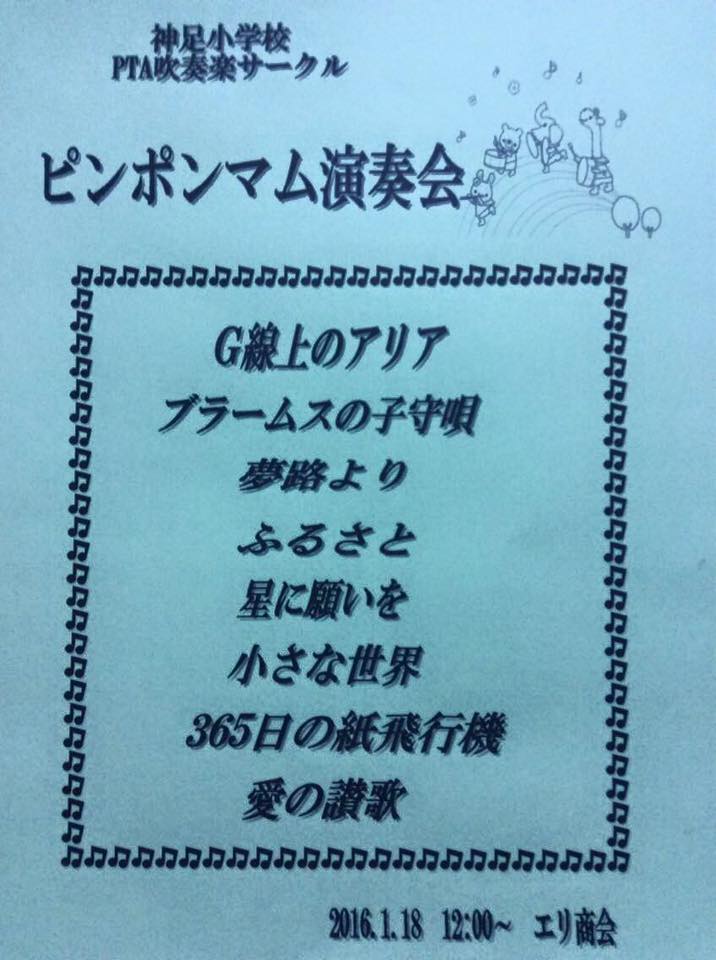 神足小学校
PTA吹奏楽サークル
ピンポンマム演奏会
G線上のアリア
ブラームスの子守唄
夢路より
ふるさと
星に願いを
小さな世界
365日の紙飛行機
愛の讃歌
2016.1.18 12:00~ エリ商会